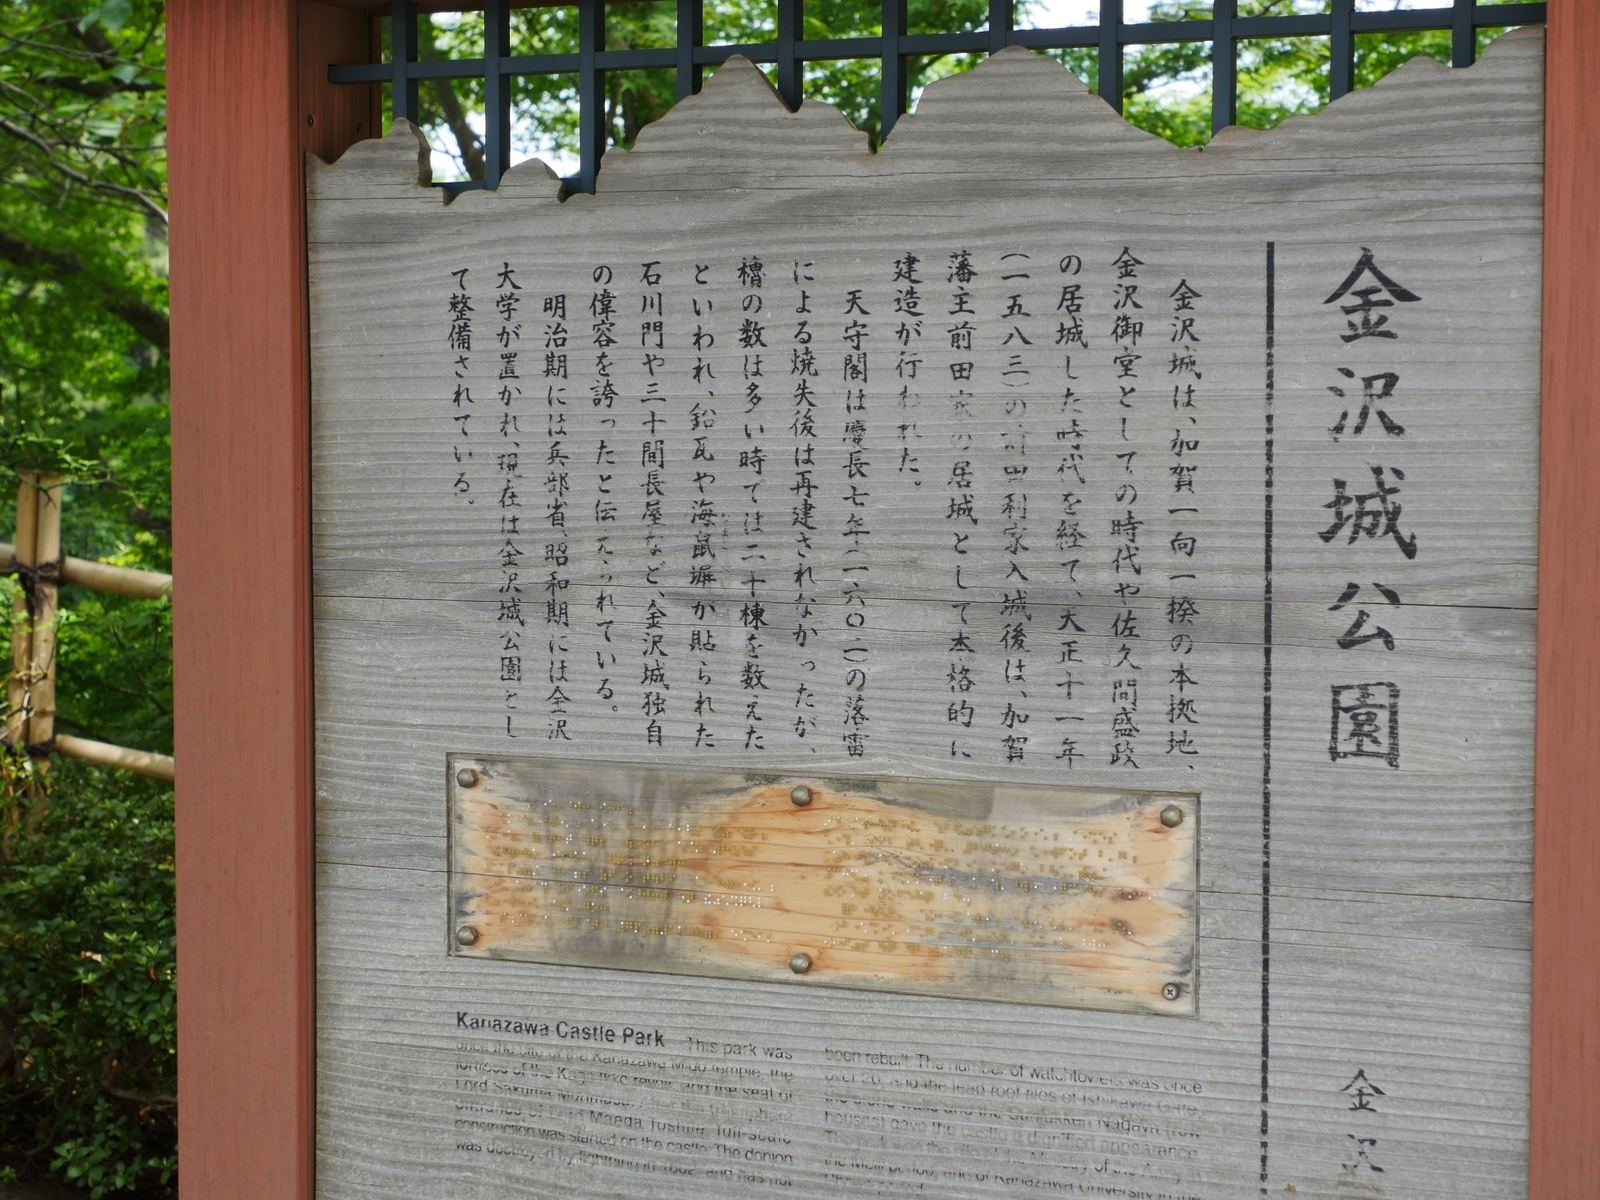 金沢城公園
金沢城は、加賀一向一揆の本拠地、
金沢御堂としての時代や佐久間盛政
の居城した時代を経て、天正十一年
(一五八三)の前田利家入城後は、加賀
藩主前田家の居城として本格的に
建造が行われた。
天守閣は慶長七年(一六〇二)の落雷
による焼失後は再建されなかったが、
櫓の数は多い時では二十棟を数えた
といわれ、鉛瓦や海鼠塀が貼られた
石川門や三十間長屋など、金沢城独自
の偉容を誇ったと伝えられている。
明治期には兵部省、昭和期には金沢
大学が置かれ、現在は金沢城公園とし
て整備されている。
金沢
Kanazawa Castle Park This park was
once the site of the Kanazawa Mido temple, the
fortress of the Kaga Ikko revolt, and the seat of
Lord Sakuma Morimasa. After the triumphant
entrance of Lord Maeda Toshiie, full-scale
construction was started on the castle. The donjon
was destroyed by lightning in 1602, and has not
been rebuilt. The number of watchtowers was once
over 20, and the lead roof tiles of Ishikawa Gate,
the stone walls and the Sanjukken Nagaya (row
houses) gave the castle a dignified appearance.
the Meiji period, and of Kanazawa University in the